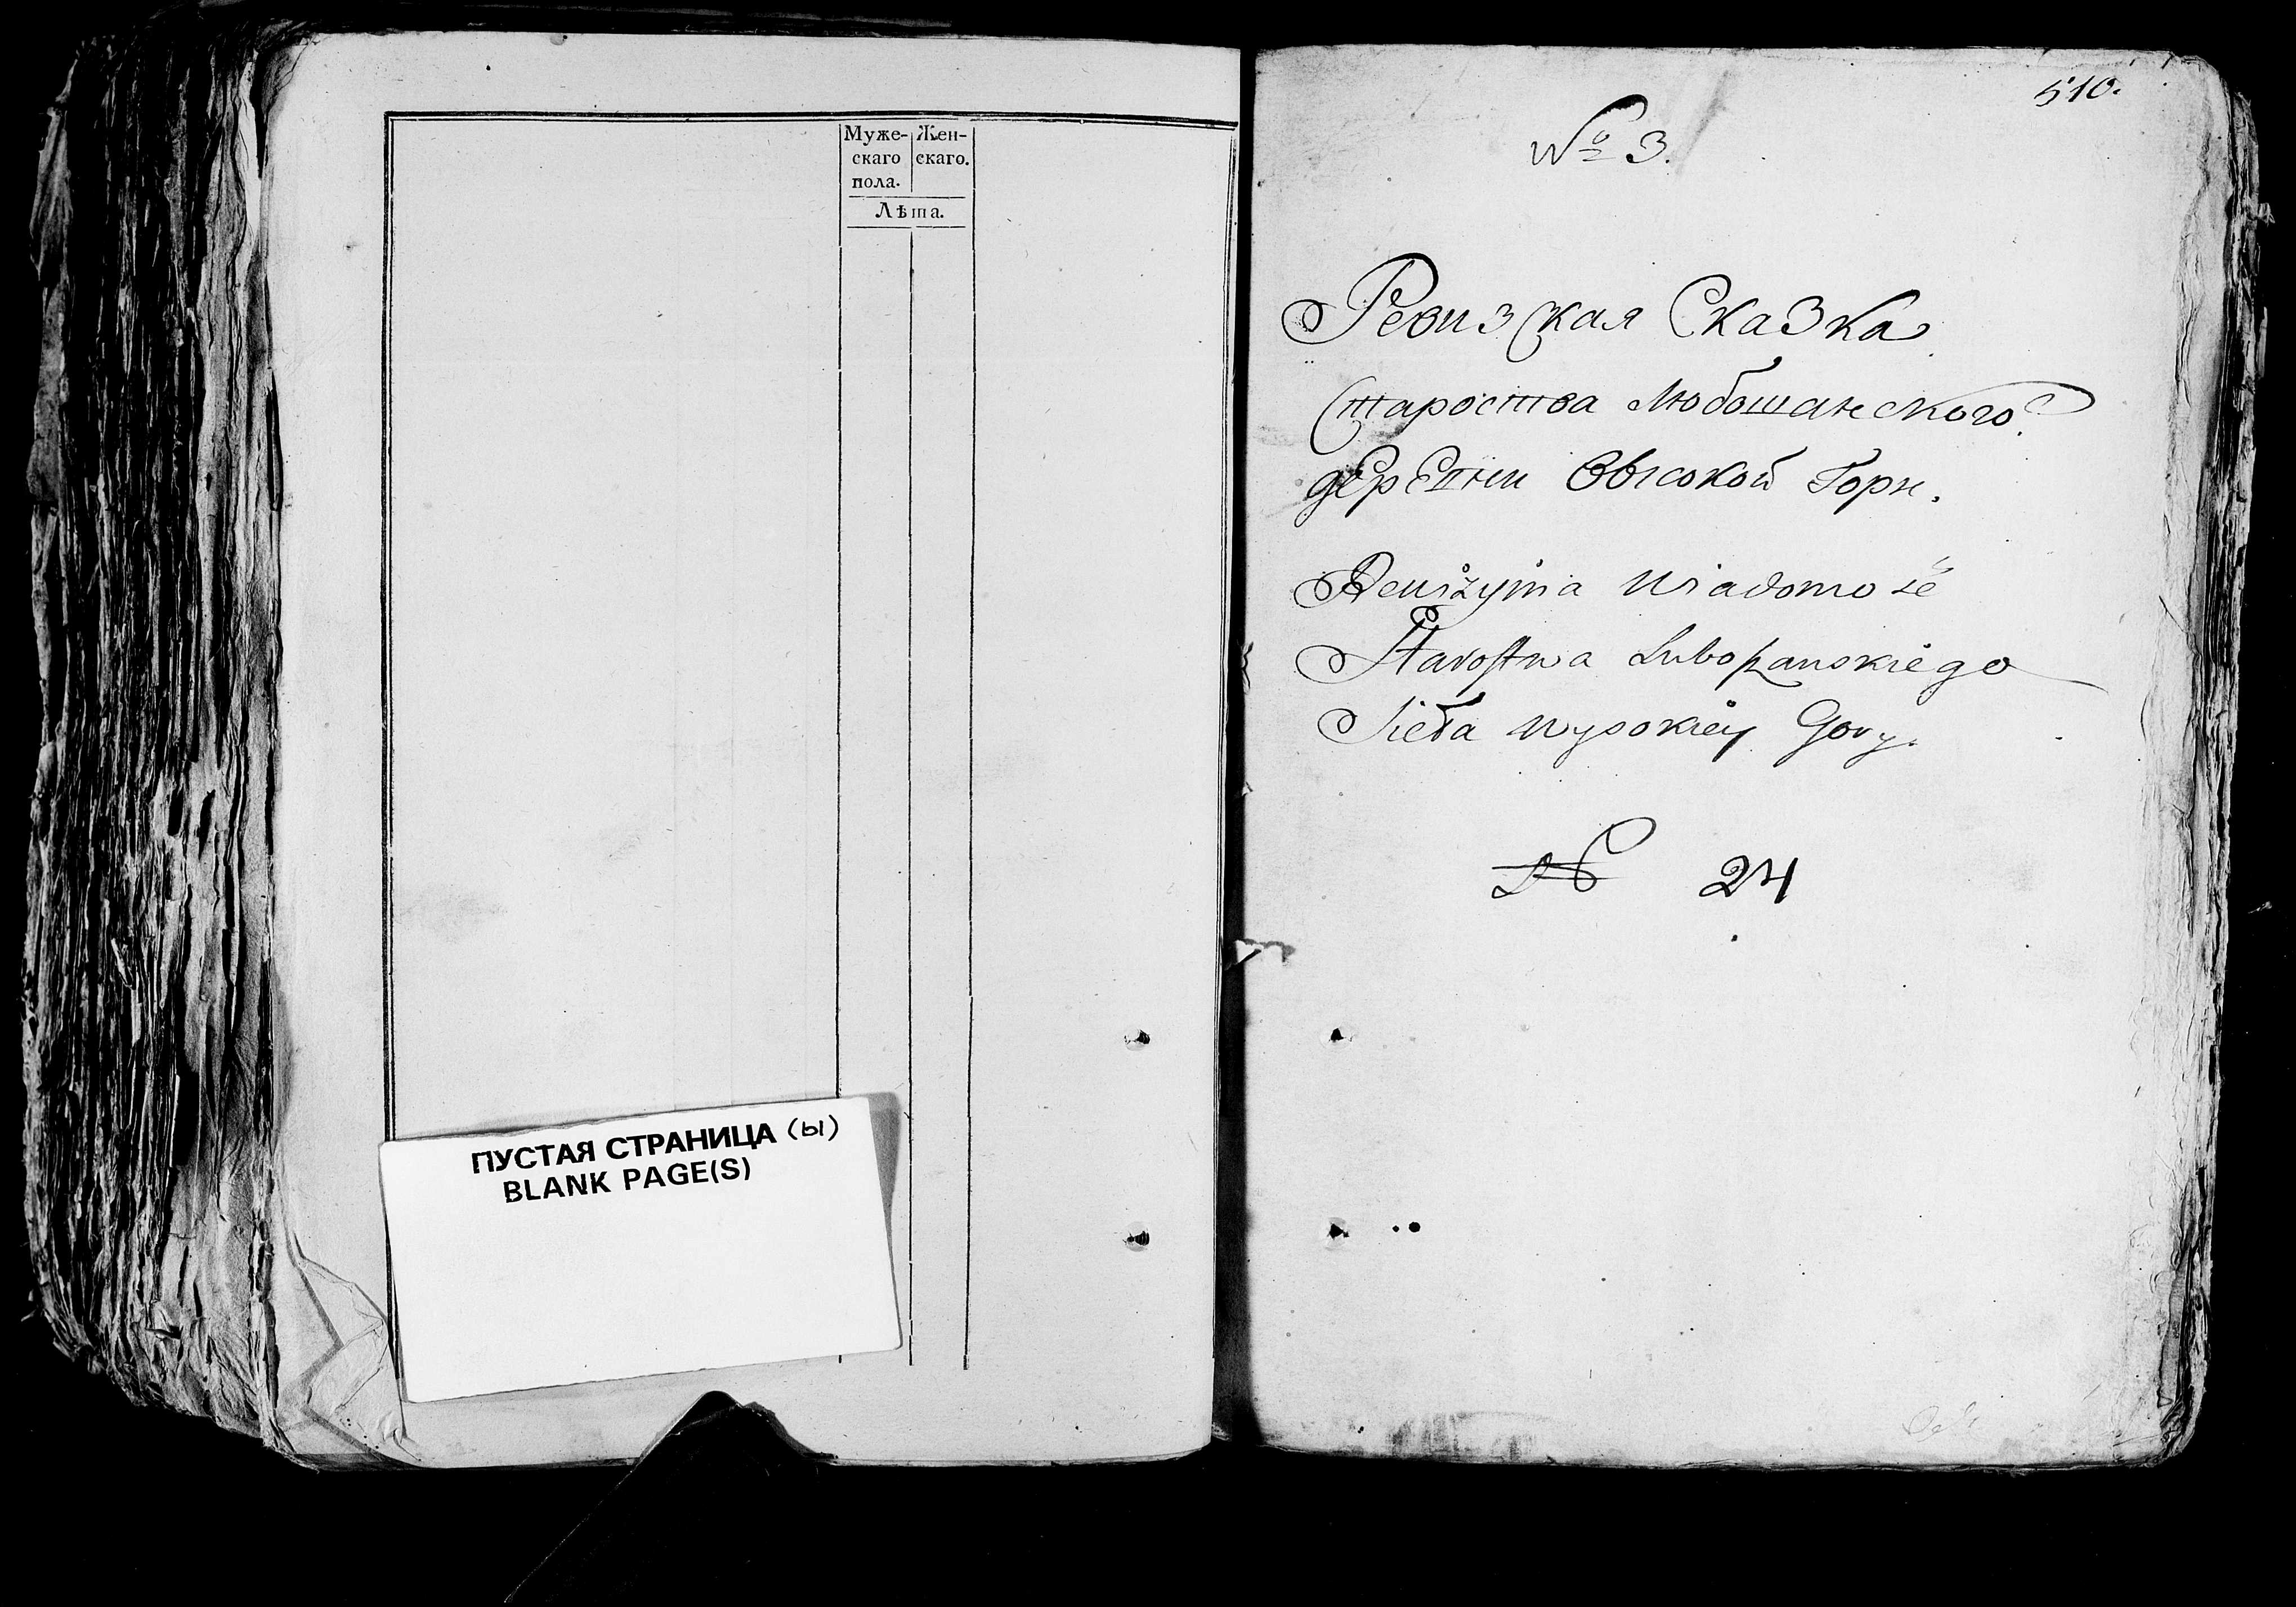 Муже- Жен-
скаго скаго.
пола.
Лѣта.
ПУСТАЯ СТРАНИЦА (ы)
BLANK PAGE(S)
510.
№ 3.
Ревизская Сказка
Староства Любошанского
деревни Высокой Горы.
Rewizyina Wiadomość
Starostwa Luboszanskiego
Sioła Wysokiey Gory.
№ 24